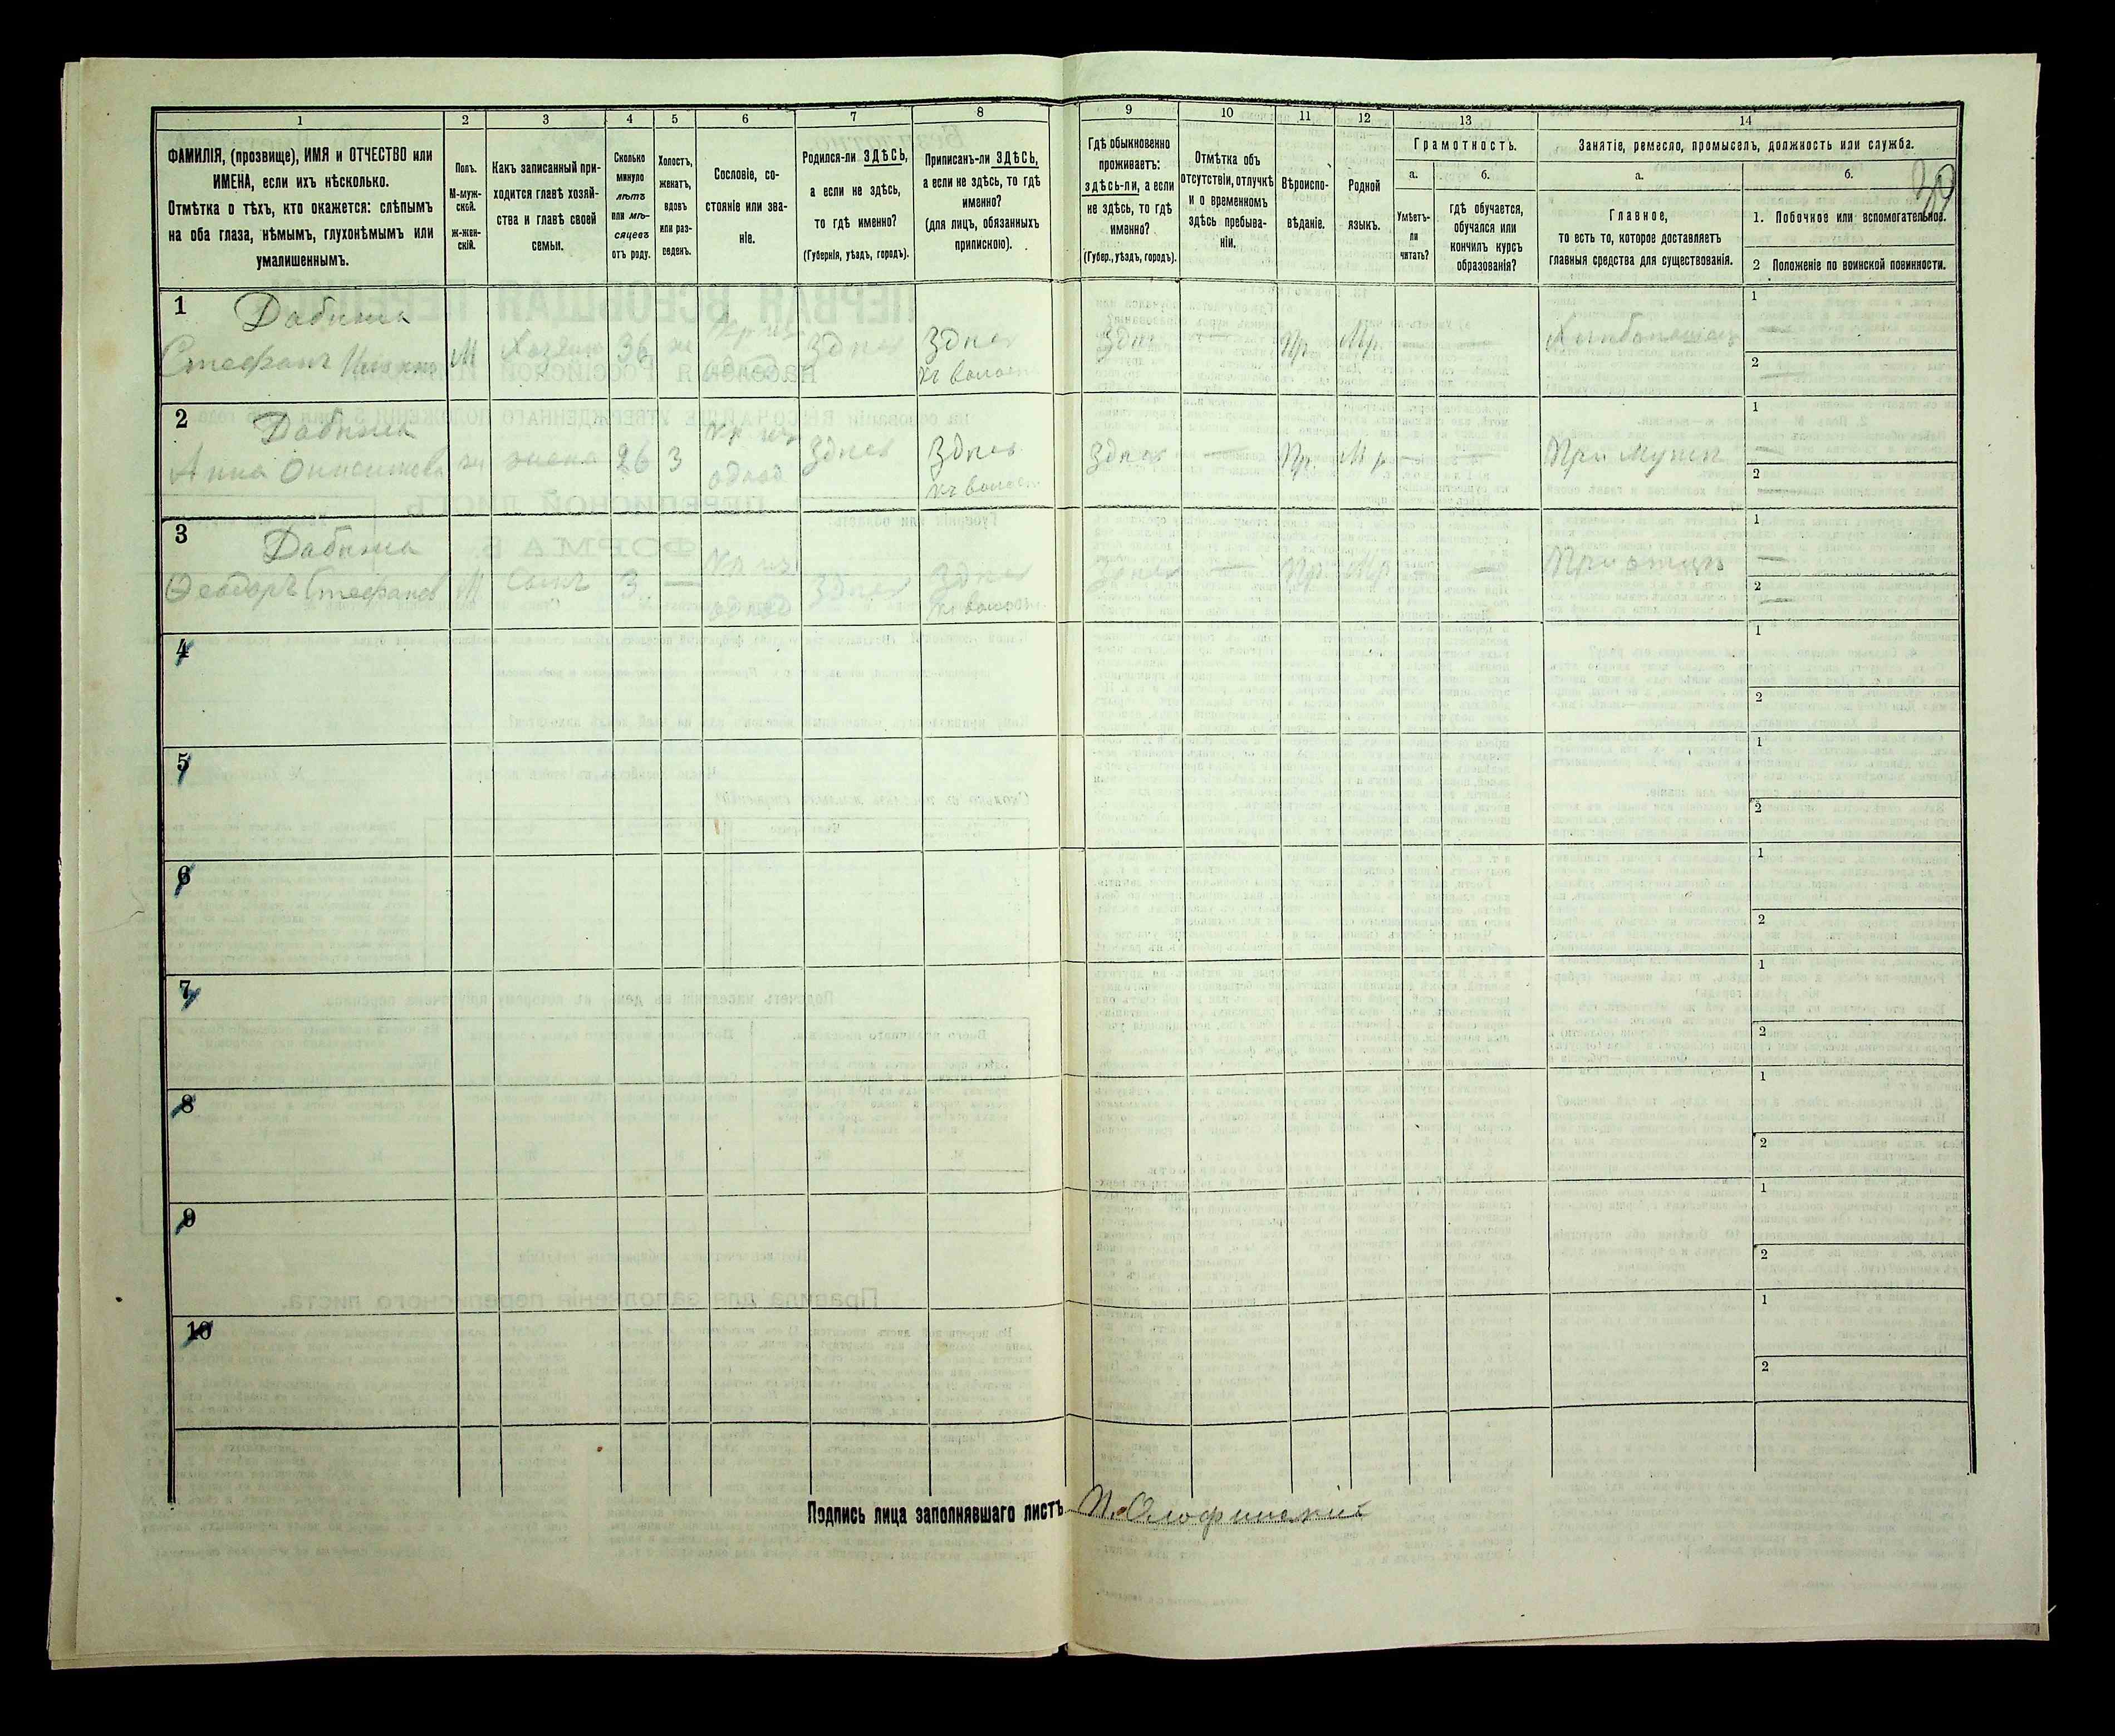 1 2 3 4 5 6 7 8 9 10 11 12 13 14
ФАМИЛІЯ, (прозвище), ИМЯ и ОТЧЕСТВО или
ИМЕНА, если ихъ нѣсколько.
Отмѣтка о тѣхъ, кто окажется: слѣпымъ
на оба глаза, нѣмымъ, глухонѣмымъ или
умалишеннымъ.
Полъ.
М-муж-
ской.
ж-жен-
скій.
Какъ записанный при-
ходится главѣ хозяй-
ства и главѣ своей
семьи.
Сколько
минуло
лѣтъ
или мѣ-
сяцевъ
отъ роду.
Холостъ,
женатъ,
вдовъ
или раз-
веденъ.
Сословіе, со-
стояніе или зва-
ніе.
Родился-ли ЗДѢСЬ,
а если не здѣсь,
то гдѣ именно?
(Губернія, уѣздъ, городъ).
Приписанъ-ли ЗДѢСЬ,
а если не здѣсь, то гдѣ
именно?
(для лицъ, обязанныхъ
припискою).
Гдѣ обыкновенно
проживаетъ:
здѣсь-ли, а если
не здѣсь, то гдѣ
именно?
(Губер., уѣздъ, городъ).
Отмѣтка объ
отсутствіи, отлучкѣ
и о временномъ
здѣсь пребыва-
ніи.
Вѣроиспо-
вѣданіе.
Родной
языкъ.
Грамотность.
а.
Умѣетъ-
ли
читать?
б.
гдѣ обучается,
обучался или
кончилъ курсъ
образованія?
Занятіе, ремесло, промыселъ, должность или служба.
а.
Главное,
то есть то, которое доставляетъ
главныя средства для существованія.
б.
39
1. Побочное или вспомогательное.
2 Положеніе по воинской повинности.
1 Дабижа
Стефанъ М Хозяин 36 ж Здѣсь Здѣсь Здѣсь — Пр. Мр. — — Хлѣбопашецъ 1 —
къ волости 2 —
2 Дабижа
Анна ж жена 26 З Кр. изъ Здѣсь Здѣсь Здѣсь — Пр. Мр. — — При мужѣ 1 —
къ волости 2
3 Дабижа
Ѳеодоръ Стефановъ М Сынъ 3. — Кр изъ Здѣсь Здѣсь Здѣсь — Пр. Мр — — При отцѣ 1 —
къ волости 2 —
4 1
2
5 1
2
6 1
2
7 1
2
8 1
2
9 1
2
10 1
2
Подпись лица заполнявшаго листъ